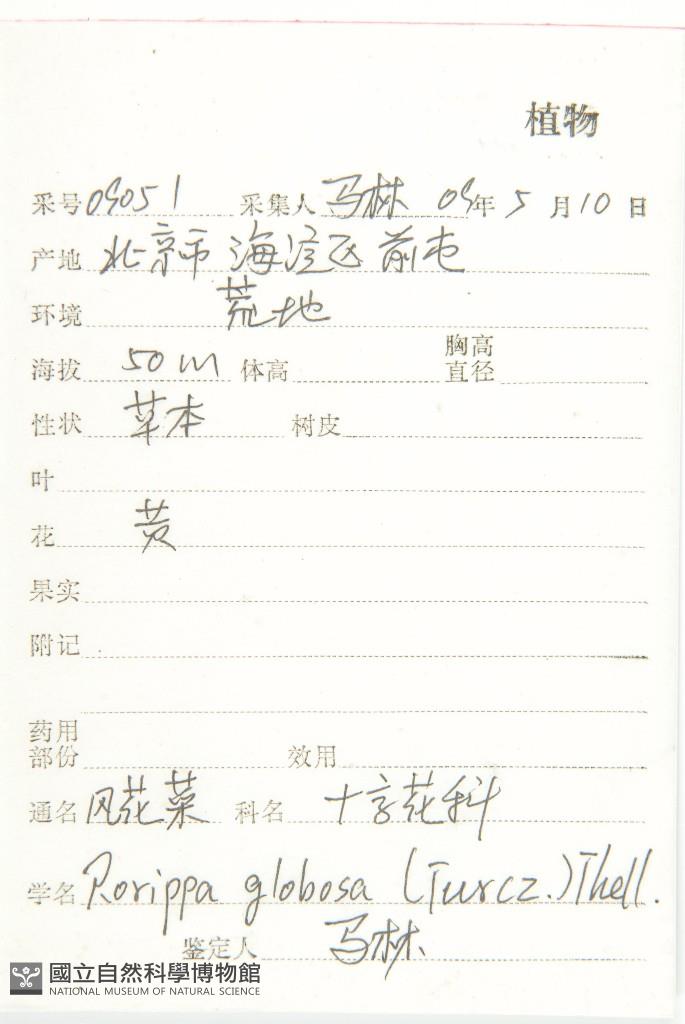 植物
采号 09051 采集人 马林 09年 5 月 10 日
产地 北京市 海淀区 前屯
环境 荒地
海拔 50m 体高 胸高直径
性状 草本 树皮
叶
花 黄
果实
附记
药用部份 效用
通名 风花菜 科名 十字花科
学名 Rorippa globosa (Turcz.) Thell.
鉴定人 马林
國立自然科學博物館
NATIONAL MUSEUM OF NATURAL SCIENCE